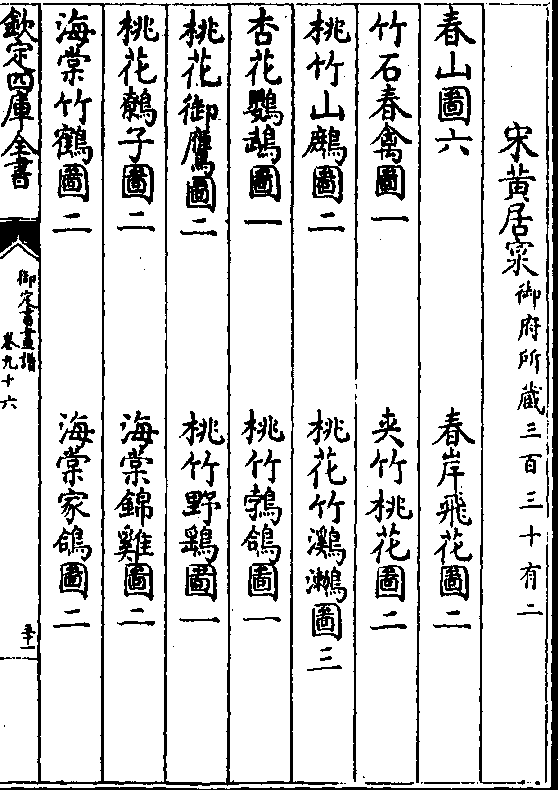 宋黄居寀御府所藏三百三十有二
春山圖六　春岸飛花圖二
竹石春禽圖一　夾竹桃花圖二
桃竹山鷓圖二　桃花竹鸂鶒圖三
杏花鸚鵡圖一　桃竹鵓鴿圖一
桃花御鷹圖二　桃竹野鷄圖一
桃花鷂子圖二　海棠錦雞圖二
海棠竹鶴圖二　海棠家鴿圖二
欽定四庫全書
御定書畫譜
卷九十六